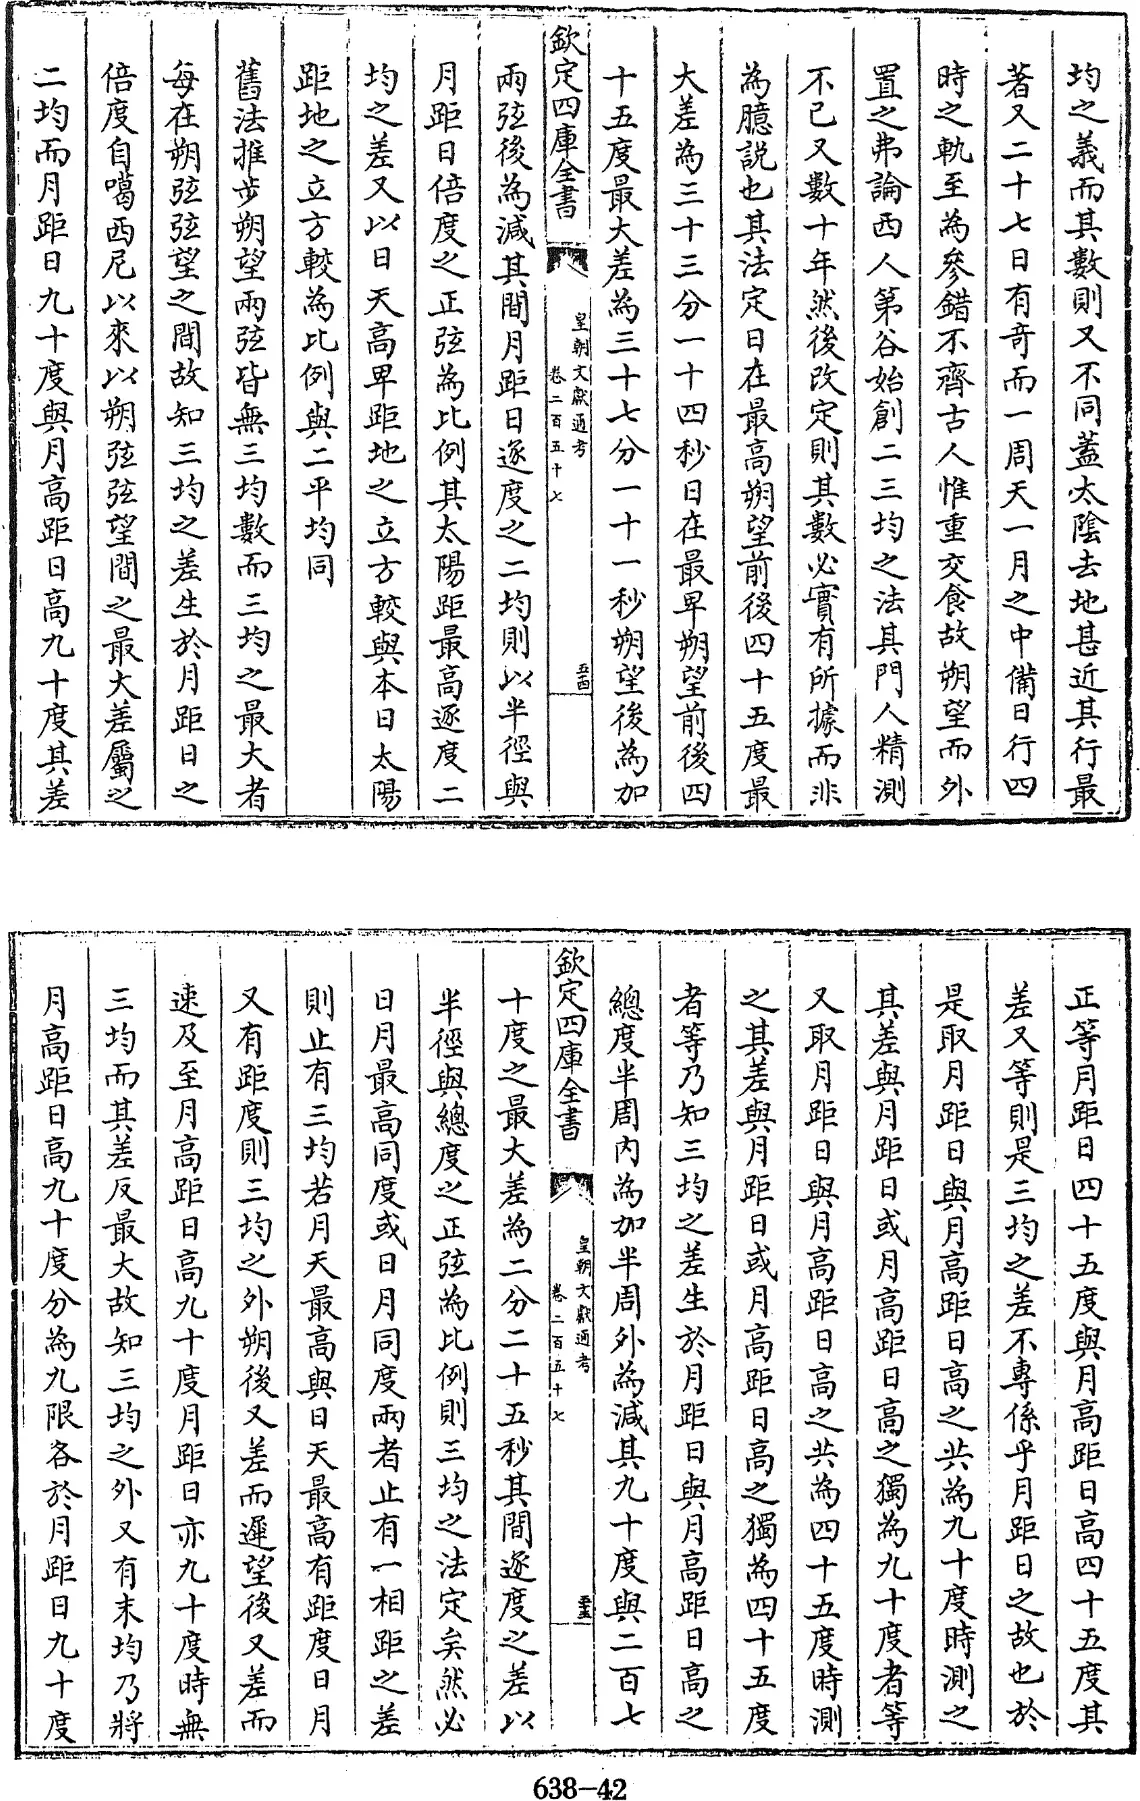 均之義而其數則又不同蓋太陰去地甚近其行最
著又二十七日有奇而一周天一月之中備日行四
時之軌至為參錯不齊古人惟重交食故朔望而外
置之弗論西人第谷始創二三均之法其門人精測
不已又數十年然後改定則其數必實有所據而非
為臆説也其法定日在最高朔望前後四十五度最
大差為三十三分一十四秒日在最卑朔望前後四
十五度最大差為三十七分一十一秒朔望後為加
欽定四庫全書
皇朝文獻通考
卷二百五十七
五四
兩弦後為減其間月距日逐度之二均則以半徑與
月距日倍度之正弦為比例其太陽距最高逐度二
均之差又以日天高卑距地之立方較與本日太陽
距地之立方較為比例與二平均同
舊法推步朔望兩弦皆無三均數而三均之最大者
每在朔弦弦望之間故知三均之差生於月距日之
倍度自噶西尼以來以朔弦弦望間之最大差屬之
二均而月距日九十度與月高距日高九十度其差
正等月距日四十五度與月高距日高四十五度其
差又等則是三均之差不專係乎月距日之故也於
是取月距日與月高距日高之共為九十度時測之
其差與月距日或月高距日高之獨為九十度者等
又取月距日與月高距日高之共為四十五度時測
之其差與月距日或月高距日高之獨為四十五度
者等乃知三均之差生於月距日與月高距日高之
總度半周内為加半周外為減其九十度與二百七
欽定四庫全書
皇朝文獻通考
卷二百五十七
十度之最大差為二分二十五秒其間逐度之差以
半徑與總度之正弦為比例則三均之法定矣然必
日月最高同度或日月同度兩者止有一相距之差
則止有三均若月天最高與日天最高有距度日月
又有距度則三均之外朔後又差而遲望後又差而
速及至月高距日高九十度月距日亦九十度時無
三均而其差反最大故知三均之外又有末均乃將
月高距日高九十度分為九限各於月距日九十度
638-42